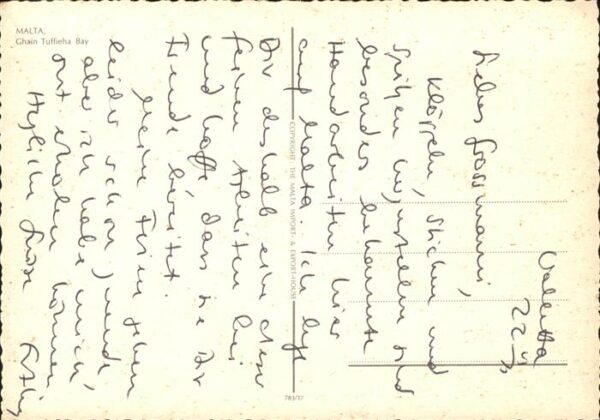 MALTA,
Ghain Tuffieha Bay
COPYRIGHT: THE MALTA IMPORT- & EXPORT-HOUSE
783/17
Valletta
22
Liebes Grossmanni,
Klöppeln, Sticken und
Spitzen herstellen sind
besonders bekannte
Handarbeiten hier
auf Malta. Ich lege
Dir deshalb eine dieser
feinen Arbeiten bei
und hoffe dass sie Dir
Freude bereitet.
Meine Ferien gehen
leider schon zu ende,
aber ich habe mich
gut erholen können
Herzliche Grüsse